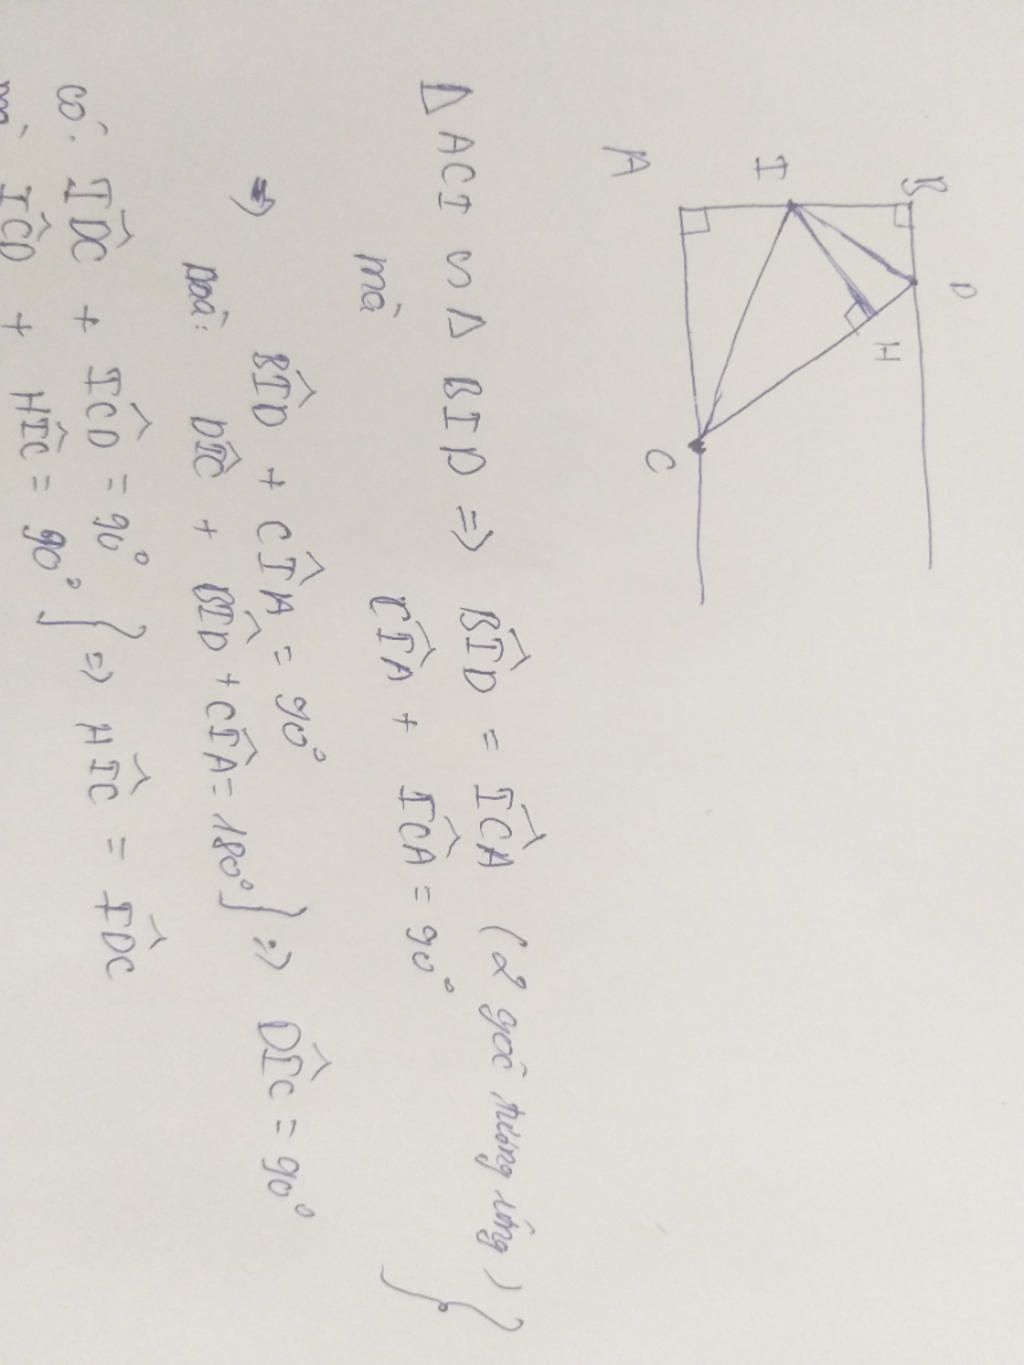 A
I
B
D
H
C
Δ ACI ∽ Δ BID => BÎD = IĈA (2 góc tương ứng) }
mà CÎA + IĈA = 90°
=> BÎD + CÎA = 90°
Mà: DÎC + BÎD + CÎA = 180° } => DÎC = 90°
có: ID̂C + IĈD = 90°
mà IĈD + HÎC = 90° } => HÎC = ID̂C